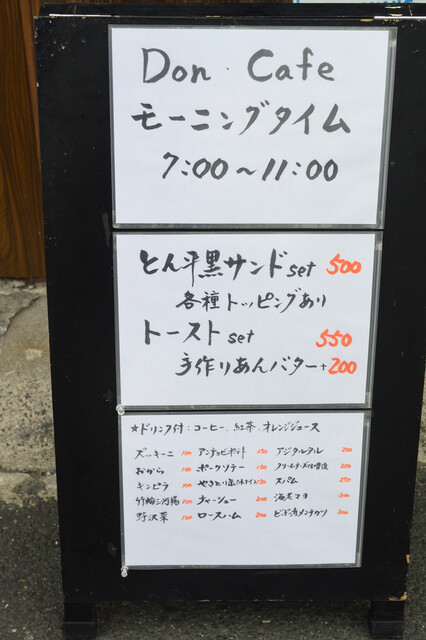 Don Cafe
モーニングタイム
7:00〜11:00
とん平黒サンド set 500
各種トッピングあり
トースト set 550
手作りあんバター +200
★ドリンク付：コーヒー、紅茶、オレンジジュース
ズッキーニ 100 アンチョビポテト 150 アジタルタル 200
おから 100 ポークソテー 150 200
キンピラ 100 やきとり缶 150 スパム 250
100 チャーシュー 200 海老マヨ 300
野沢菜 100 ロースハム 200 300